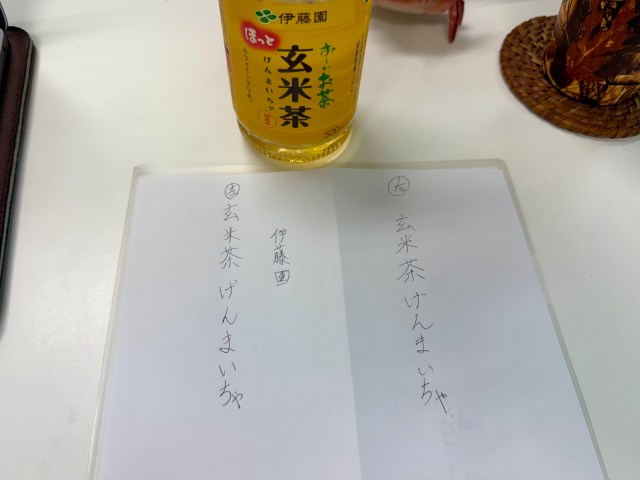 伊藤園
ほっと
お〜いお茶
玄米茶
げんまいちゃ
500
右
玄米茶げんまいちゃ
伊藤園
左
玄米茶げんまいちゃ